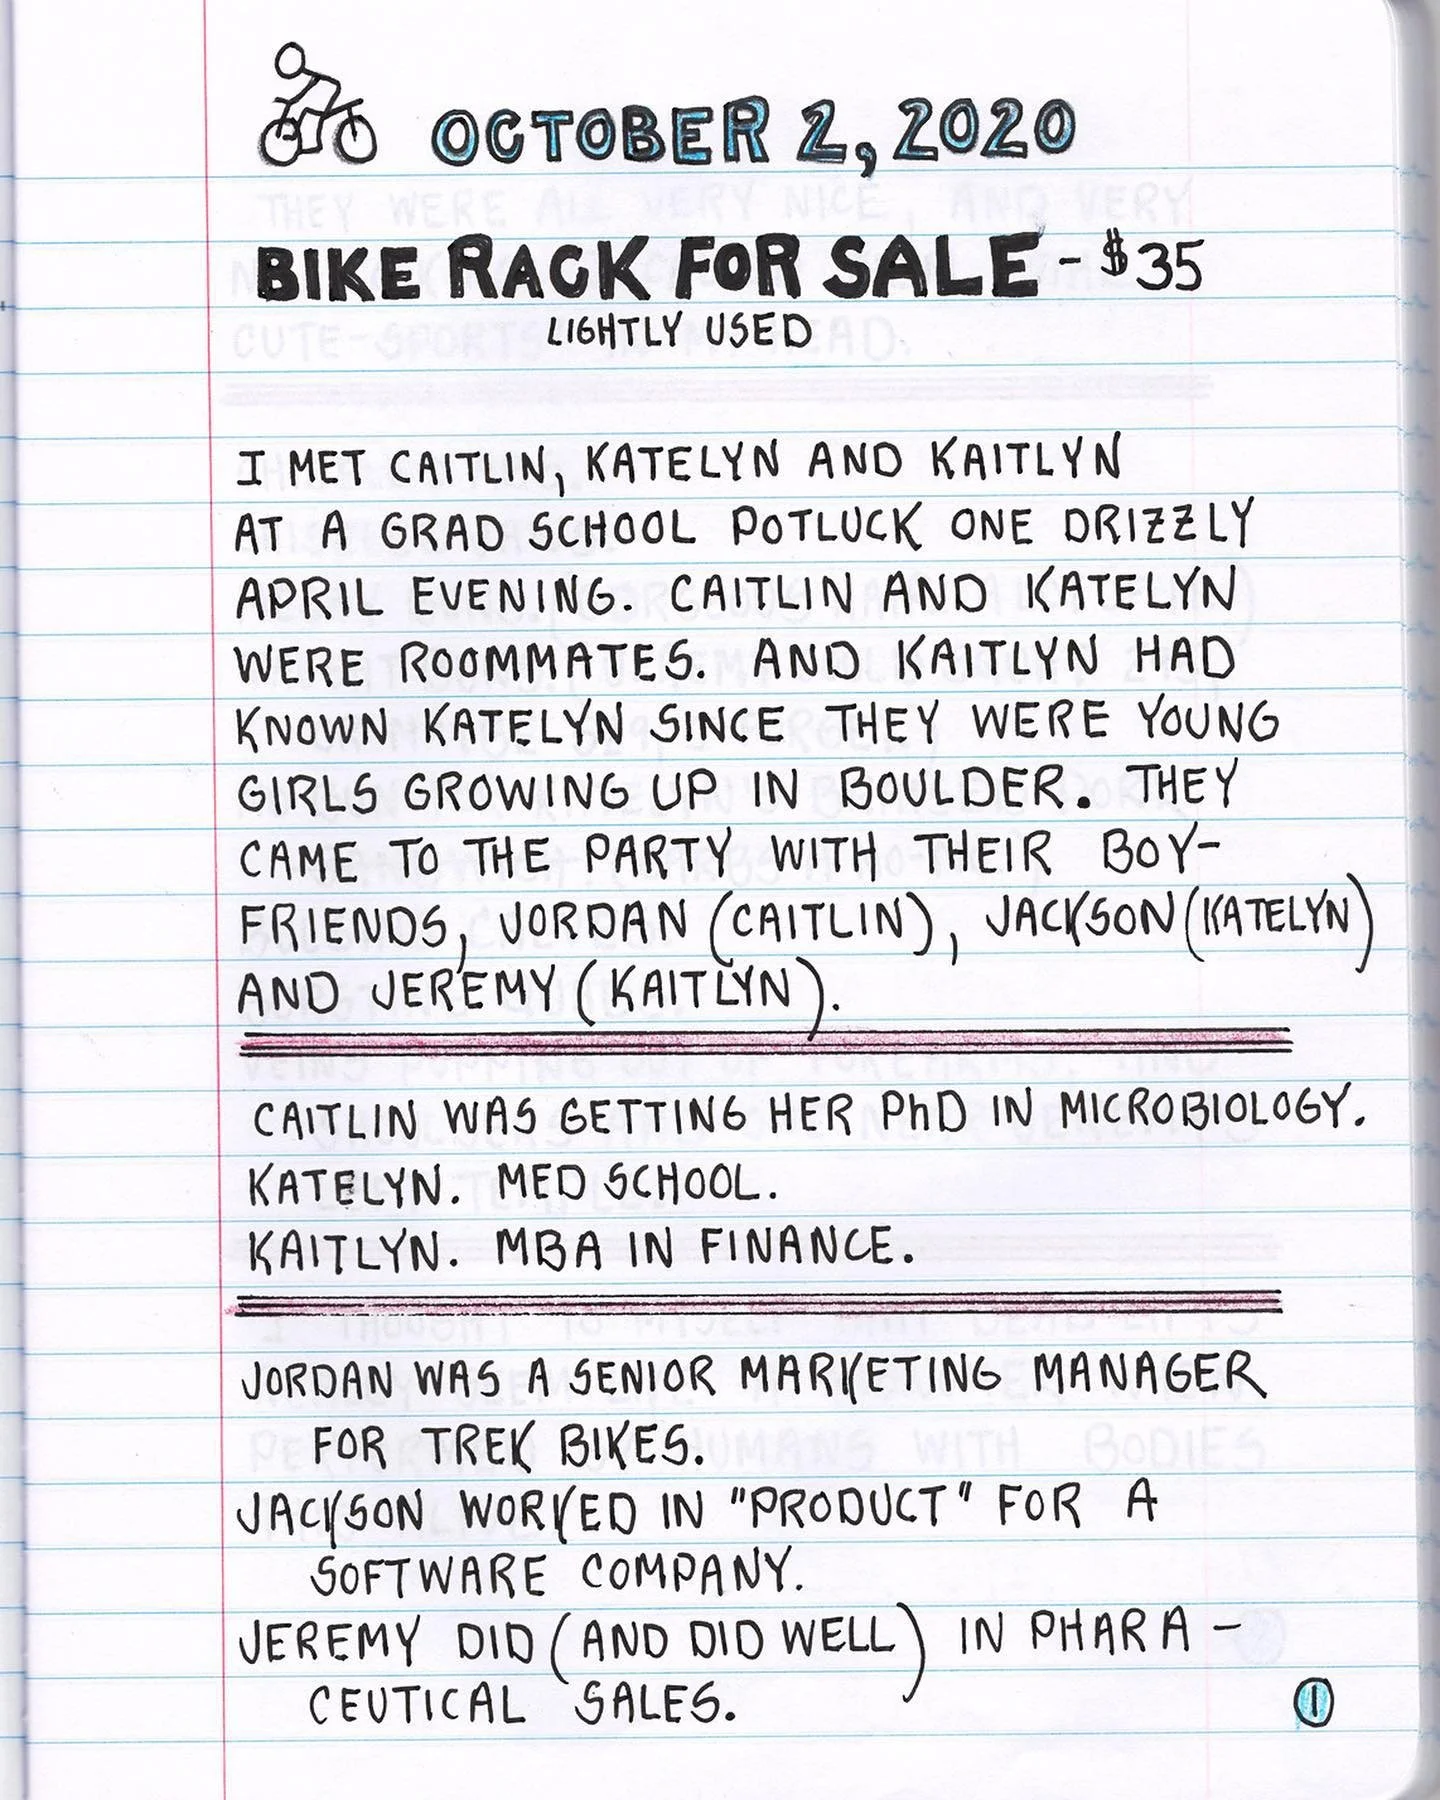 OCTOBER 2, 2020
BIKE RACK FOR SALE - $35
LIGHTLY USED
I MET CAITLIN, KATELYN AND KAITLYN
AT A GRAD SCHOOL POTLUCK ONE DRIZZLY
APRIL EVENING. CAITLIN AND KATELYN
WERE ROOMMATES. AND KAITLYN HAD
KNOWN KATELYN SINCE THEY WERE YOUNG
GIRLS GROWING UP IN BOULDER. THEY
CAME TO THE PARTY WITH THEIR BOY-
FRIENDS, JORDAN (CAITLIN), JACKSON (KATELYN)
AND JEREMY (KAITLYN).
CAITLIN WAS GETTING HER PhD IN MICROBIOLOGY.
KATELYN. MED SCHOOL.
KAITLYN. MBA IN FINANCE.
JORDAN WAS A SENIOR MARKETING MANAGER
FOR TREK BIKES.
JACKSON WORKED IN "PRODUCT" FOR A
SOFTWARE COMPANY.
JEREMY DID (AND DID WELL) IN PHARA-
CEUTICAL SALES.
1